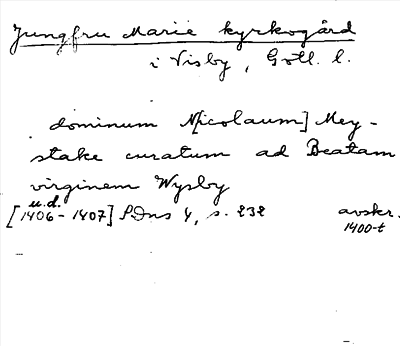 Jungfru Marie kyrkogård
i Visby, Gotl. l.
dominum N[icolaum] Mey-
stake curatum ad Beatam
virginem Wysby
u.d.
[1406-1407] SDns 1, s. 232 avskr.
1400-t